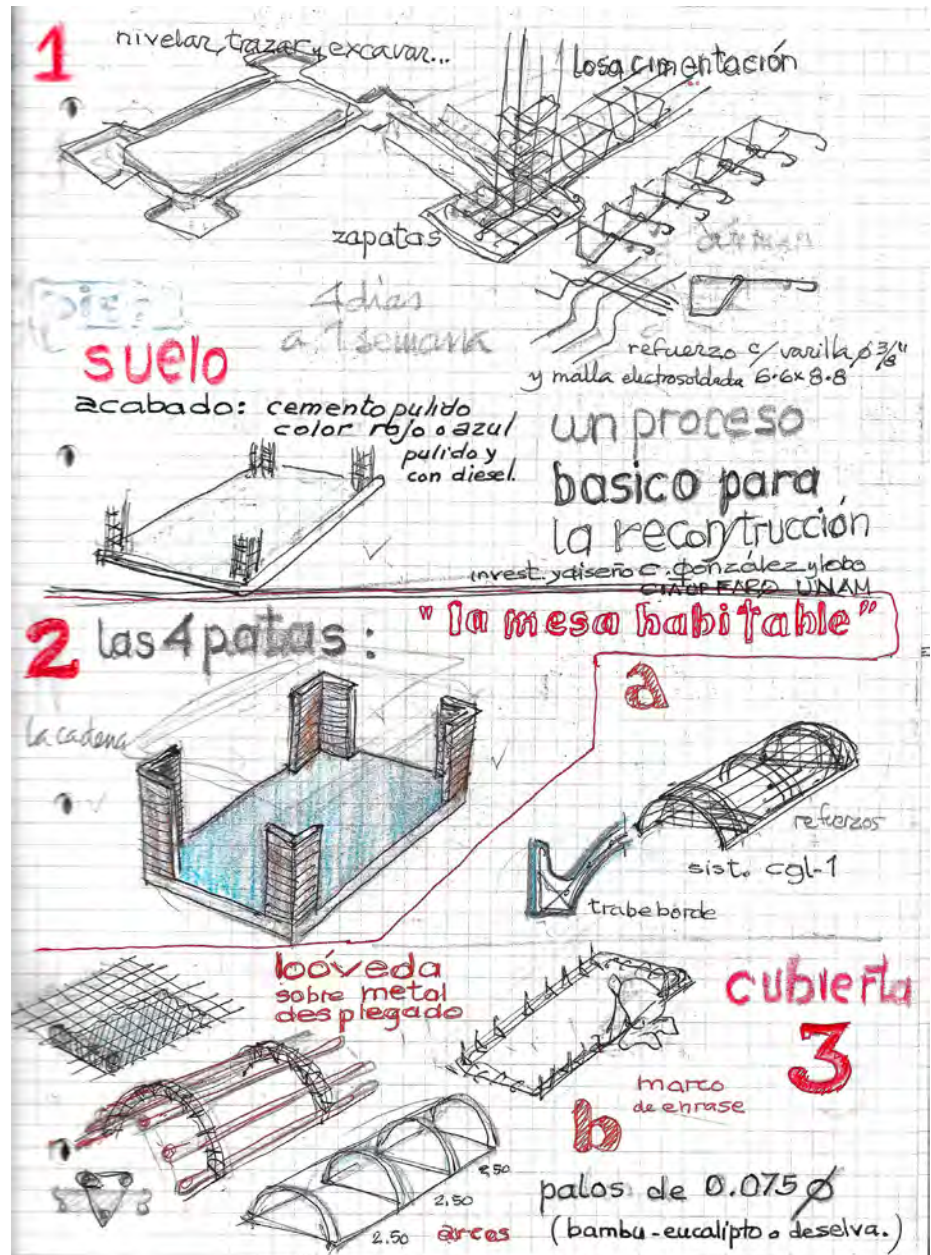 1
nivelar, trazar y excavar...
losa cimentación
zapatas
4 días
a 1 semana
refuerzo c/ varilla ø 3/8"
y malla electrosoldada 6·6x8·8
suelo
acabado: cemento pulido
color rojo o azul
pulido y
con diesel.
un proceso
basico para
la reconstrucción
invest. y diseño c. gonzález y lobo
UNAM
2 las 4 patas:
"la mesa habitable"
la cadena
a
refuerzos
sist. cgl-1
trabe borde
bóveda
sobre metal
desplegado
cubierta
3
marco
de enrase
b
2,50
2,50
2.50
arcos
palos de 0.075 ø
(bambu-eucalipto o deselva.)